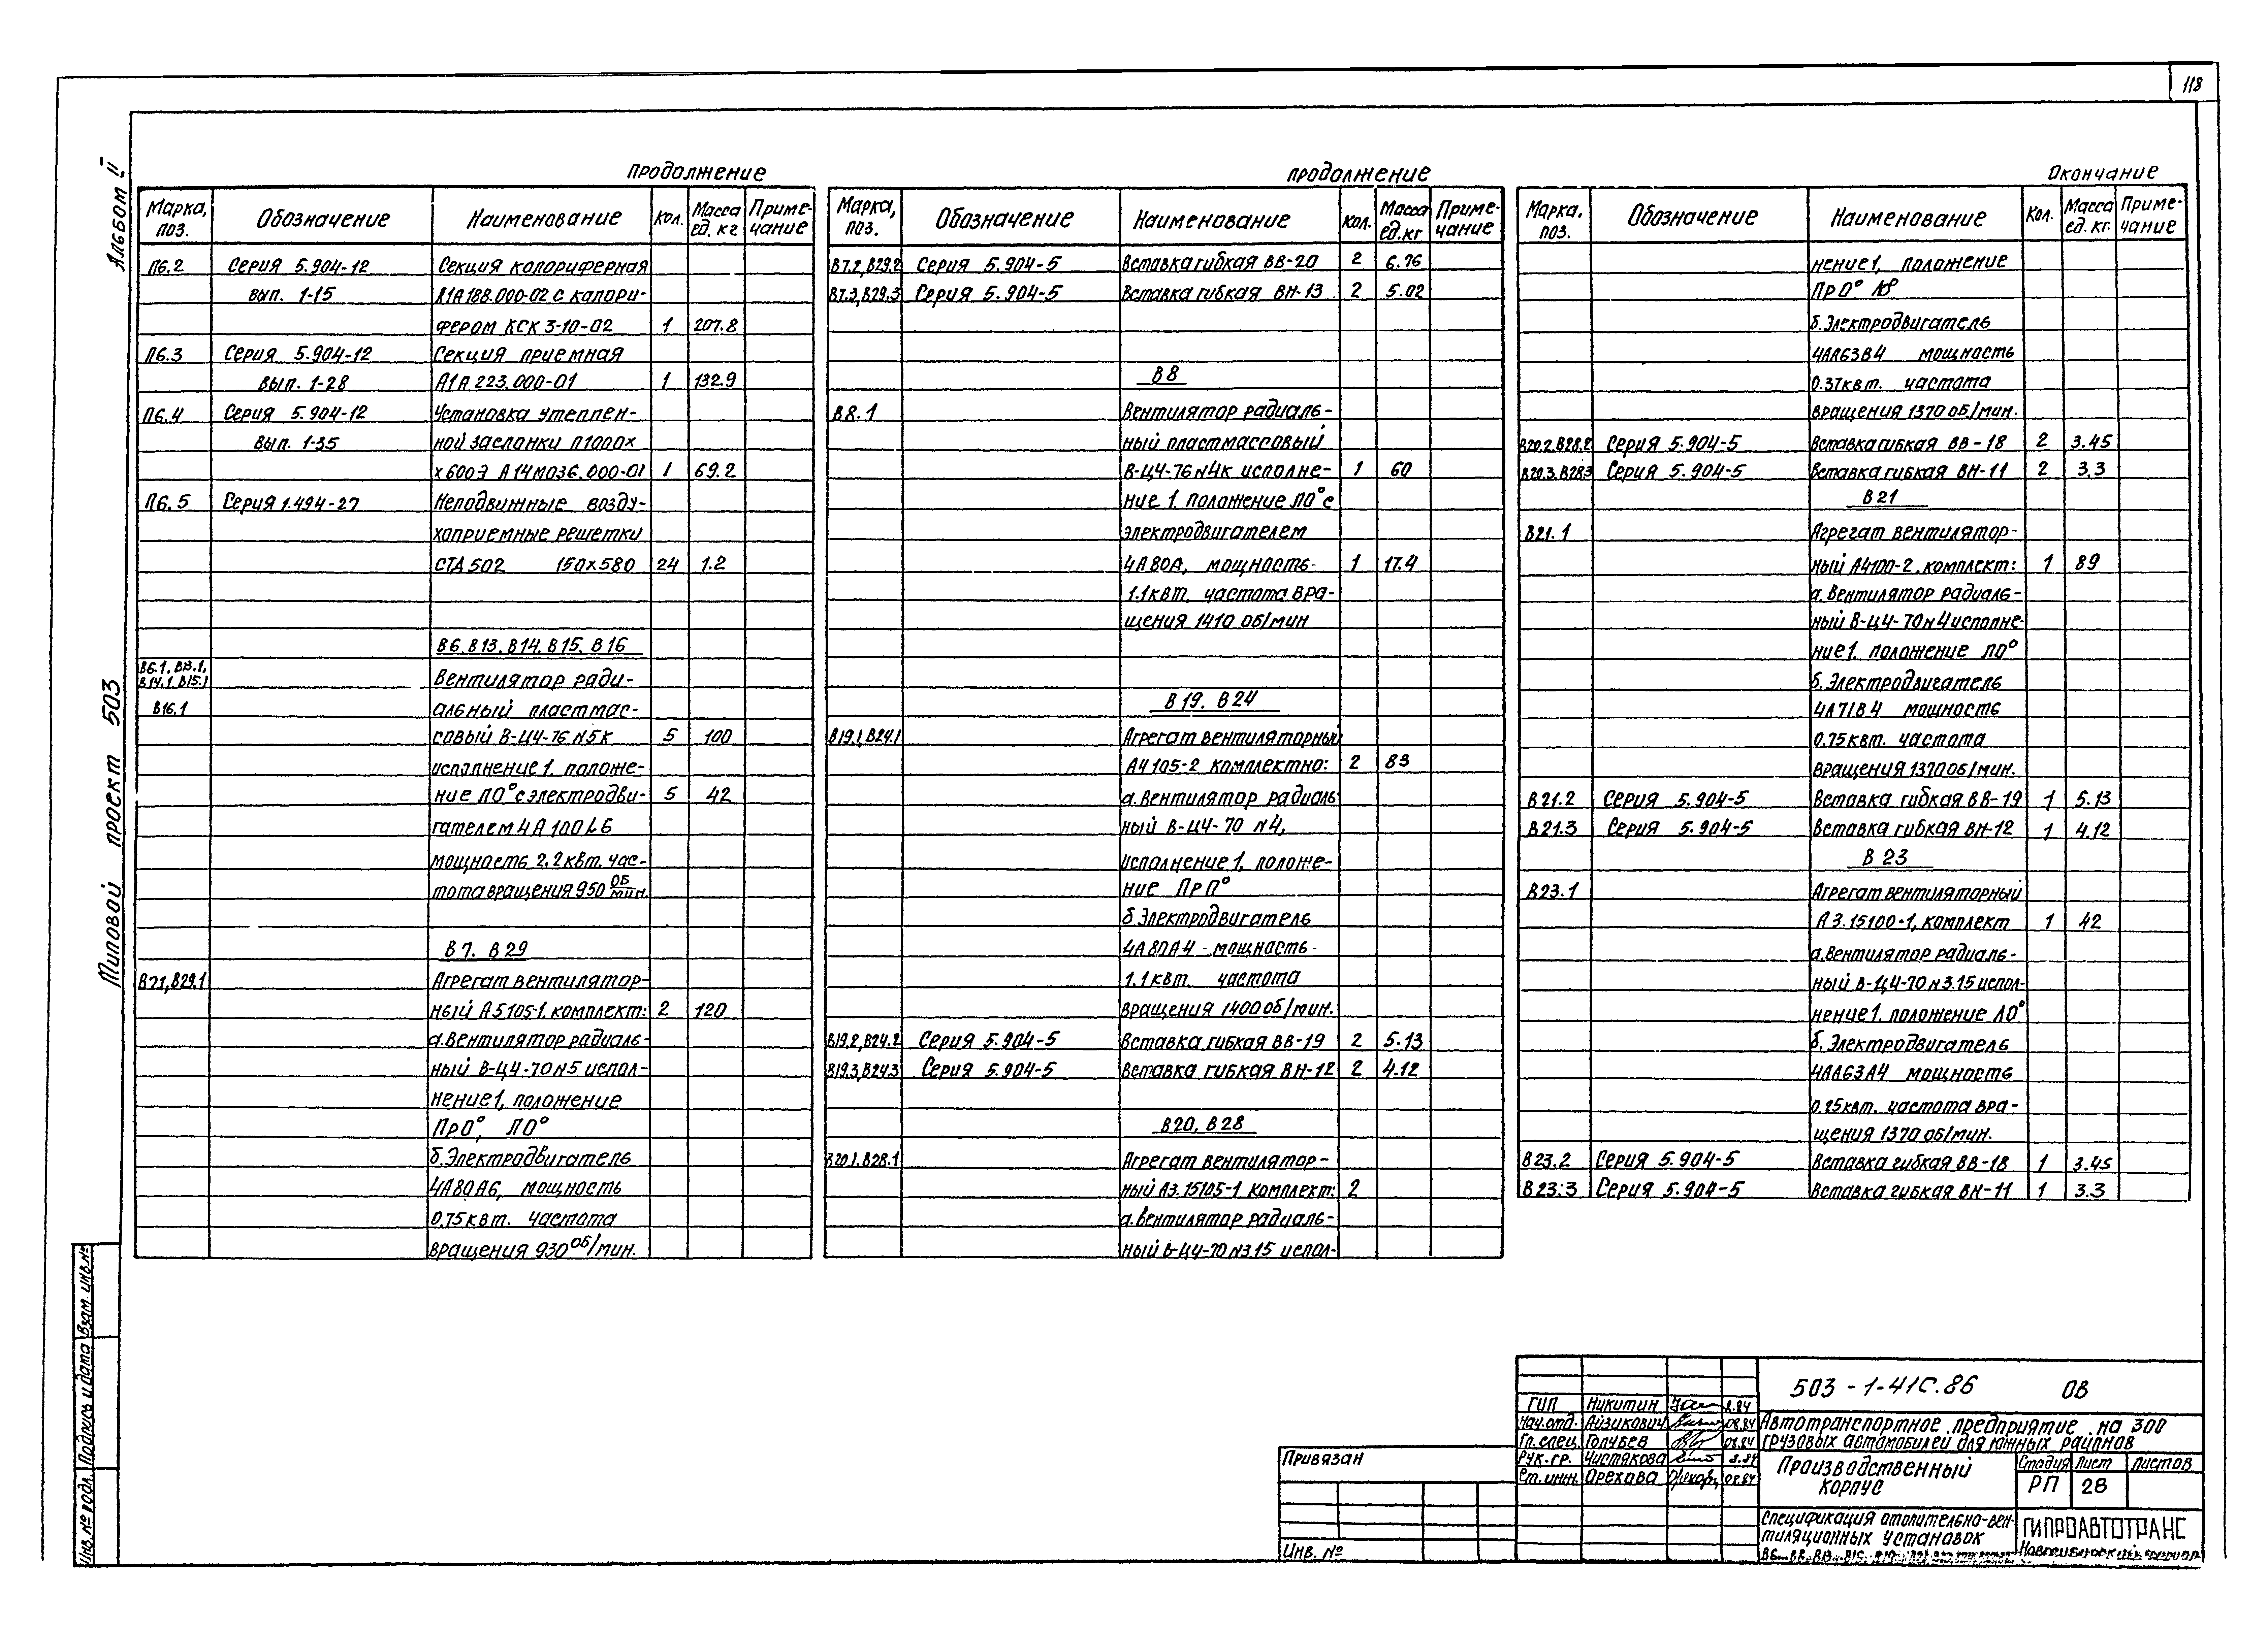 118
Альбом II
Типовой проект 503
продолжение
Марка, поз. Обозначение Наименование Кол. Масса ед. кг Примечание
П6.2 Серия 5.904-12 Секция калориферная
вып. 1-15 А1А188.000-02 с калори-
фером КСК 3-10-02 1 207.8
П6.3 Серия 5.904-12 Секция приемная
вып. 1-28 А1А 223.000-01 1 132.9
П6.4 Серия 5.904-12 Установка утеплен-
вып. 1-35 ной заслонки П1000х
х600Э А14М036.000-01 1 69.2
П6.5 Серия 1.494-27 Неподвижные возду-
хоприемные решетки
СТД 502 150х580 24 1.2
В6, В13, В14, В15, В16
В6.1, В13.1,
В14.1, В15.1 Вентилятор ради-
В16.1 альный пластмас-
совый В-Ц4-76 №5К 5 100
исполнение 1. положе-
ние Л0° с электродви- 5 42
гателем 4А 100L6
мощность 2.2 квт. час-
тота вращения 950 об/мин.
В7. В29
В7.1, В29.1 Агрегат вентилятор-
ный А5105-1. комплект: 2 120
а. Вентилятор радиаль-
ный В-Ц4-70 №5 испол-
нение 1, положение
Пр0°, Л0°
б. Электродвигатель
4А80А6, мощность
0,75 квт. частота
вращения 930 об/мин.
продолжение
Марка, поз. Обозначение Наименование Кол. Масса ед. кг Примечание
В7.2, В29.2 Серия 5.904-5 Вставка гибкая ВВ-20 2 6.76
В7.3, В29.3 Серия 5.904-5 Вставка гибкая ВН-13 2 5.02
В8
В8.1 Вентилятор радиаль-
ный пластмассовый
В-Ц4-76 №4К исполне- 1 60
ние 1. положение Л0° с
электродвигателем
4А80А, мощность 1 17.4
1.1 квт. частота вра-
щения 1410 об/мин
В19. В24
В19.1, В24.1 Агрегат вентиляторный
А4105-2 комплектно: 2 83
а. Вентилятор радиаль
ный В-Ц4-70 №4,
исполнение 1, положе-
ние ПрП°
б. Электродвигатель
4А80А4 - мощность
1.1 квт частота
вращения 1400 об/мин.
В19.2, В24.2 Серия 5.904-5 Вставка гибкая ВВ-19 2 5.13
В19.3, В24.3 Серия 5.904-5 Вставка гибкая ВН-12 2 4.12
В20. В28
В20.1, В28.1 Агрегат вентилятор-
ный А3.15105-1 комплект: 2
а. Вентилятор радиаль-
ный В-Ц4-70 №3.15 испол-
Окончание
Марка, поз. Обозначение Наименование Кол. Масса ед. кг. Примечание
нение 1, положение
Пр0° Л0°
б. Электродвигатель
4АА63В4 мощность
0.37 квт. частота
вращения 1370 об/мин.
В20.2, В28.2 Серия 5.904-5 Вставка гибкая ВВ-18 2 3.45
В20.3, В28.3 Серия 5.904-5 Вставка гибкая ВН-11 2 3.3
В21
В21.1 Агрегат вентилятор-
ный А4100-2, комплект: 1 89
а. Вентилятор радиаль-
ный В-Ц4-70 №4 исполне-
ние 1. положение Л0°
б. Электродвигатель
4А71В4 мощность
0.75 квт. частота
вращения 1370 об/мин.
В21.2 Серия 5.904-5 Вставка гибкая ВВ-19 1 5.13
В21.3 Серия 5.904-5 Вставка гибкая ВН-12 1 4.12
В23
В23.1 Агрегат вентиляторный
А3.15100-1, комплект 1 42
а. Вентилятор радиаль-
ный В-Ц4-70 №3.15 испол-
нение 1. положение Л0°
б. Электродвигатель
4АА63А4 мощность
0.25 квт. частота вра-
щения 1370 об/мин.
В23.2 Серия 5.904-5 Вставка гибкая ВВ-18 1 3.45
В23.3 Серия 5.904-5 Вставка гибкая ВН-11 1 3.3
Инв. № подл. Подпись и дата Взам. инв. №
Привязан
Инв. №
ГИП Никитин 8.84
Нач. отд. Айзикович 08.84
Гл. спец. Голубев 08.84
Рук. гр. Чистякова 8.84
Ст. инж. Орехова 08.84
503-1-41С.86 ОВ
Автотранспортное предприятие на 300
грузовых автомобилей для южных районов
Производственный
корпус
Стадия Лист Листов
РП 28
Спецификация отопительно-вен-
тиляционных установок
ГИПРОАВТОТРАНС